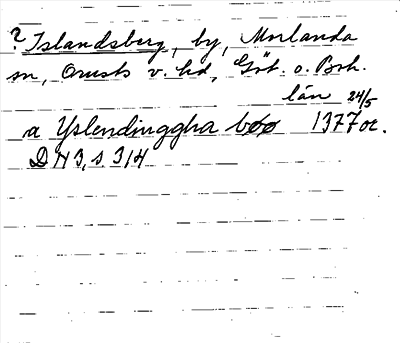 ? Islandsberg, by, Morlanda
sn, Orusts v. hd, Göt. o. Boh.
län 24/5
a Yslendinggha bøø 1377 or.
DN 3, s 314